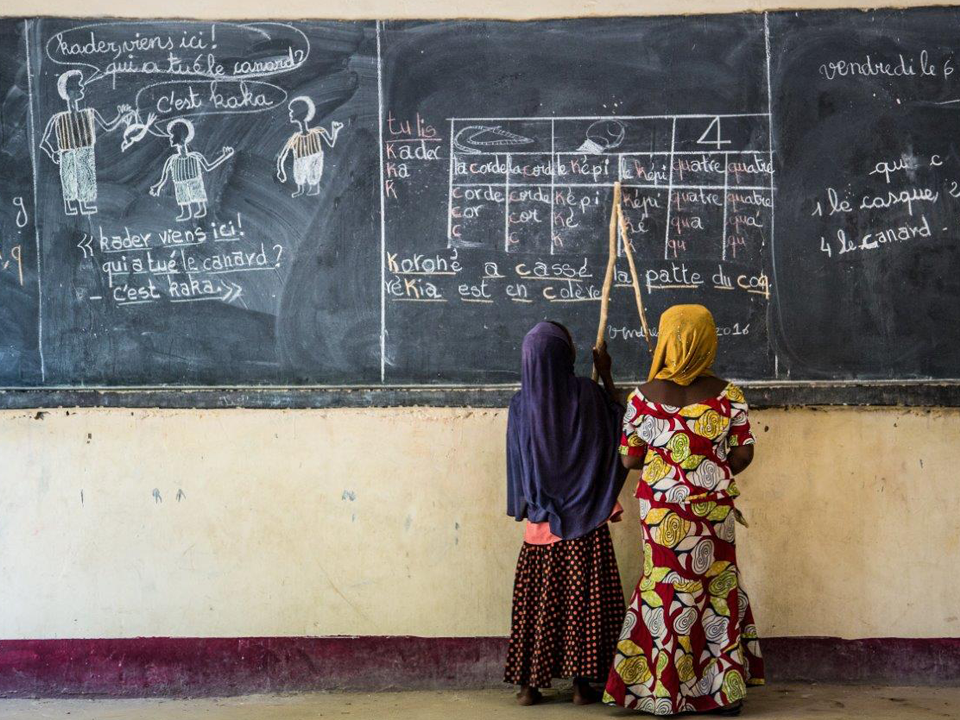 kader, viens ici!
qui a tué le canard?
c'est kaka
« kader viens ici!
qui a tué le canard?
- c'est kaka. »
g
q
tu lis
Kader
Ka
K
4
la corde la corde le képi le képi quatre quatre
corde corde képi képi quatre quatre
cor cor ké ké qua qua
c c k qu qu
Koroné a cassé la patte du coq.
rékia est en colère
2016
vendredi le 6
qui c
1 le casque, 2
4 le canard -